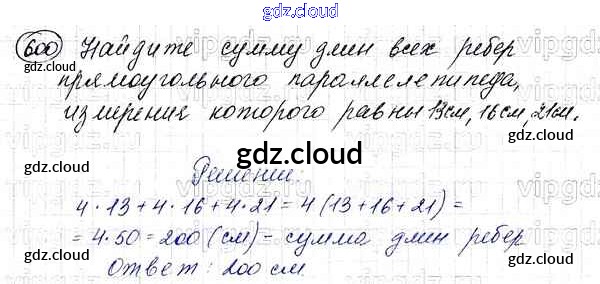 gdz.cloud
600 Найдите сумму длин всех ребер
gdz.cloud
прямоугольного параллелепипеда,
измерение которого равны 13см, 16см, 21см.
gdz.cloud
gdz.cloud
gdz.cloud
Решение:
4·13+4·16+4·21=4(13+16+21)=
=4·50=200(см)-сумма длин ребер
gdz.cloud
gdz.cloud
Ответ: 200см
gdz.cloud